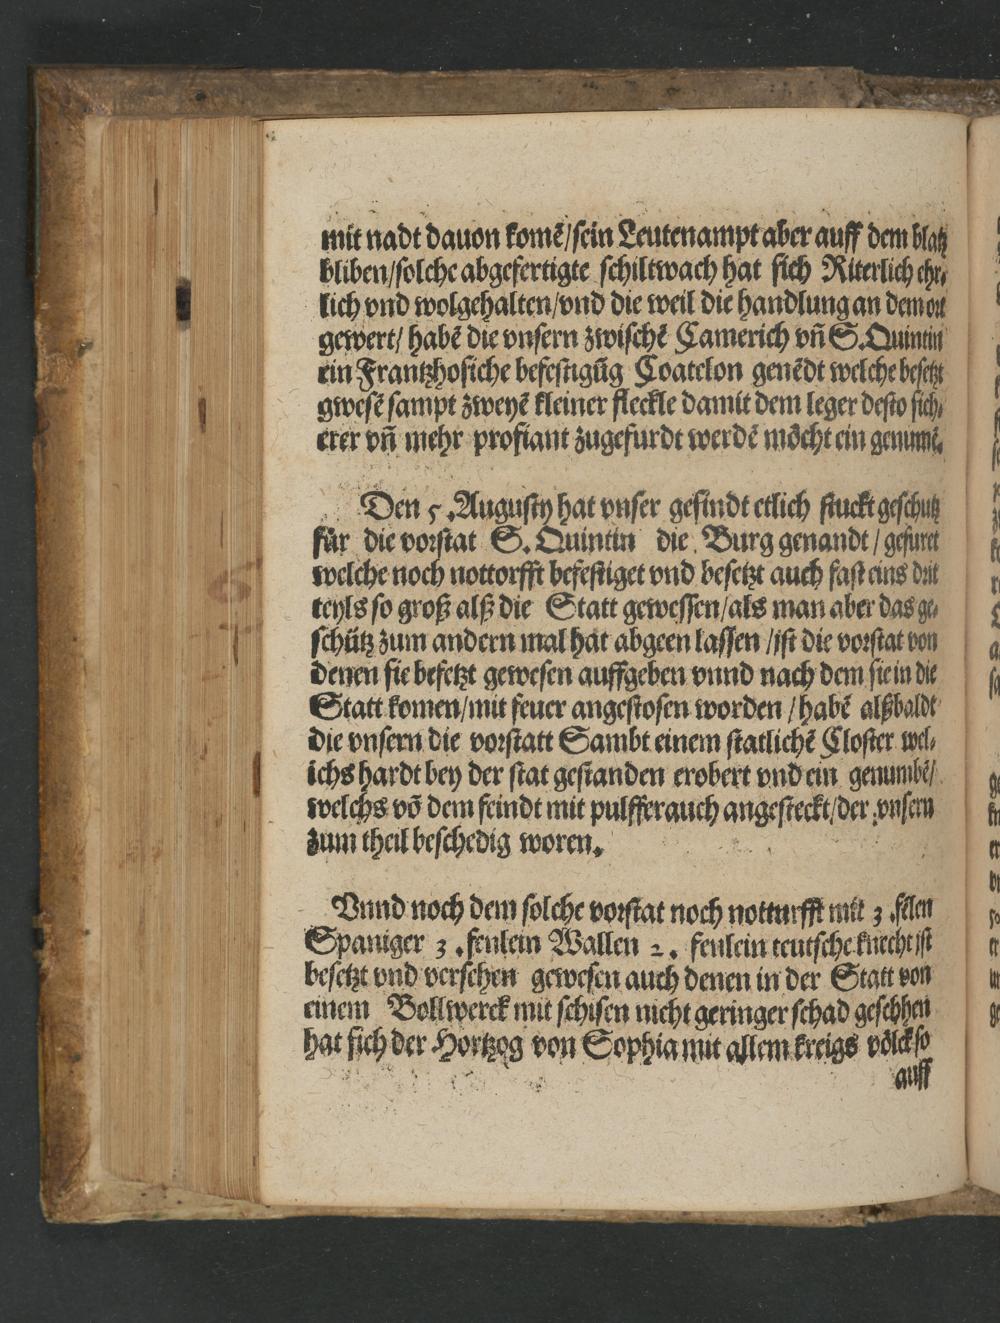 mit nadt dauon komē/sein Leutenampt aber auff dem blatz
bliben/solche abgefertigte schiltwach hat sich Riterlich ehr,
lich vnd wolgehalten/vnd die weil die handlung an dem ort
gewert/ habē die vnsern zwischē Camerich vn̄ S.Quintin
ein Frantzhosiche befestigūg Coatelon genēdt welche besetzt
gwesē sampt zweyē kleiner fleckle damit dem leger desto sich,
erer vn̄ mehr profiant zugefurdt werdē möcht ein genumē.
Den 5.Augusty hat vnser gesindt etlich stuckt geschutz
für die vorstat S. Quintin die Burg genandt / gefuret
welche noch nottorfft befestiget vnd besetzt auch fast eins drit
teyls so groß alß die Statt gewessen/als man aber das ge,
schütz zum andern mal hat abgeen lassen /ist die vorstat von
denen sie besetzt gewesen auffgeben vnnd nach dem sie in die
Statt komen/mit feuer angestosen worden / habē alßbaldt
die vnsern die vorstatt Sambt einem statlichē Closter wel,
ichs hardt bey der stat gestanden erobert vnd ein genumbē/
welchs vō dem feindt mit pulffer auch angesteckt/der vnsern
zum theil beschedig woren.
Vnnd noch dem solche vorstat noch notturfft mit 3 .felen
Spaniger 3 .fenlein Wallen 2. fenlein teutsche knecht ist
besetzt vnd versehen gewesen auch denen in der Statt von
einem Bollwerck mit schisen nicht geringer schad geschhen
hat sich der Hortzog von Sophia mit allem kreigs völck so
auff